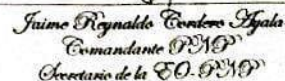 Jaime Reynaldo Cordero Ayala
Comandante PNP
Secretario de la EO-PNP